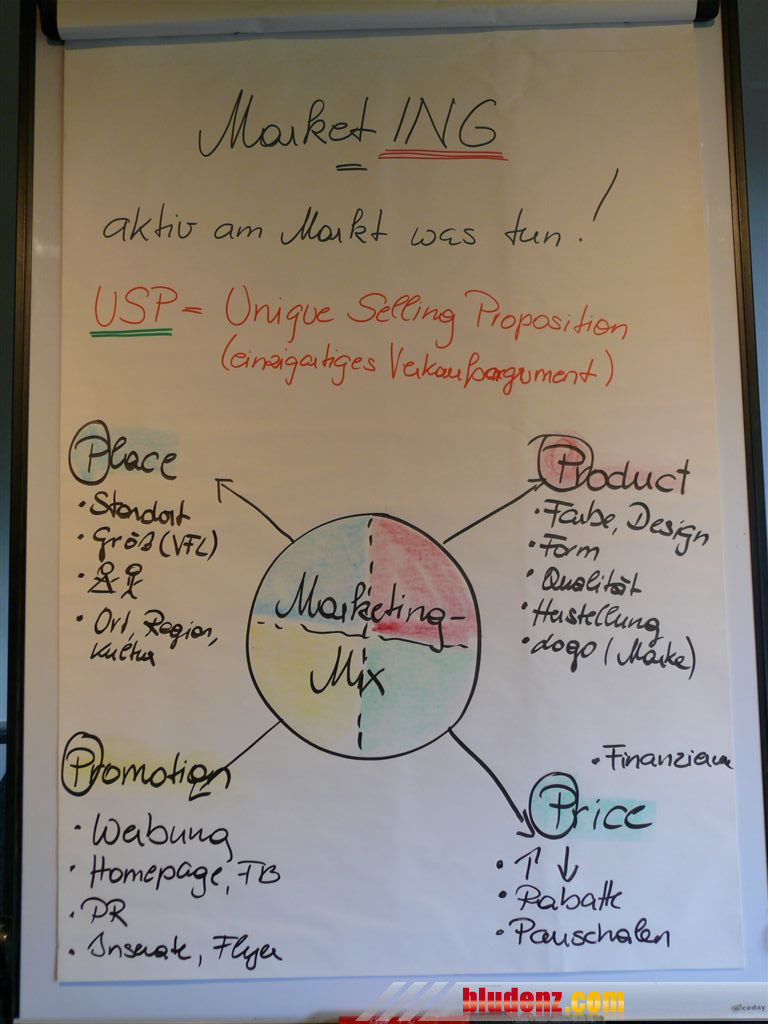 MarketING
aktiv am Markt was tun!
USP = Unique Selling Proposition
(einzigartiges Verkaufsargument)
Place
• Standort
• Größ (VFL)
•
• Ort, Region,
Kultur
Product
• Farbe, Design
• Form
• Qualität
• Herstellung
• Logo (Marke)
Marketing-
Mix
Promotion
• Werbung
• Homepage, FB
• PR
• Inserate, Flyer
• Finanzierung
Price
• ↑ ↓
• Rabatte
• Pauschalen
bludenz.com